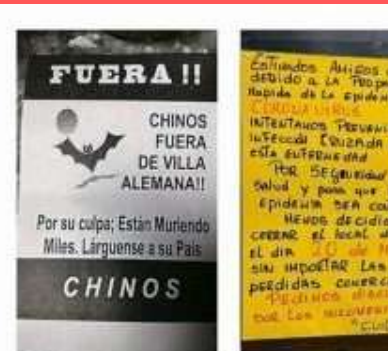 FUERA !!
CHINOS
FUERA
DE VILLA
ALEMANA!!
Por su culpa; Están Muriendo
Miles. Lárguense a su Pais
CHINOS
Estimados Amigos
debido a la
Rapida de la Epidem
CORONAVIRUS
INTENTAMOS
INFECCION CRUZADA
esta ENFERMEDAD
POR SEGURIDAD
Salud y para que
Epidemia SEA CO
HEMOS decidi
CERRAR el local
el dia 20 de
SIN IMPORTAR LAS
perdidas
PEDIMOS
POR LOS